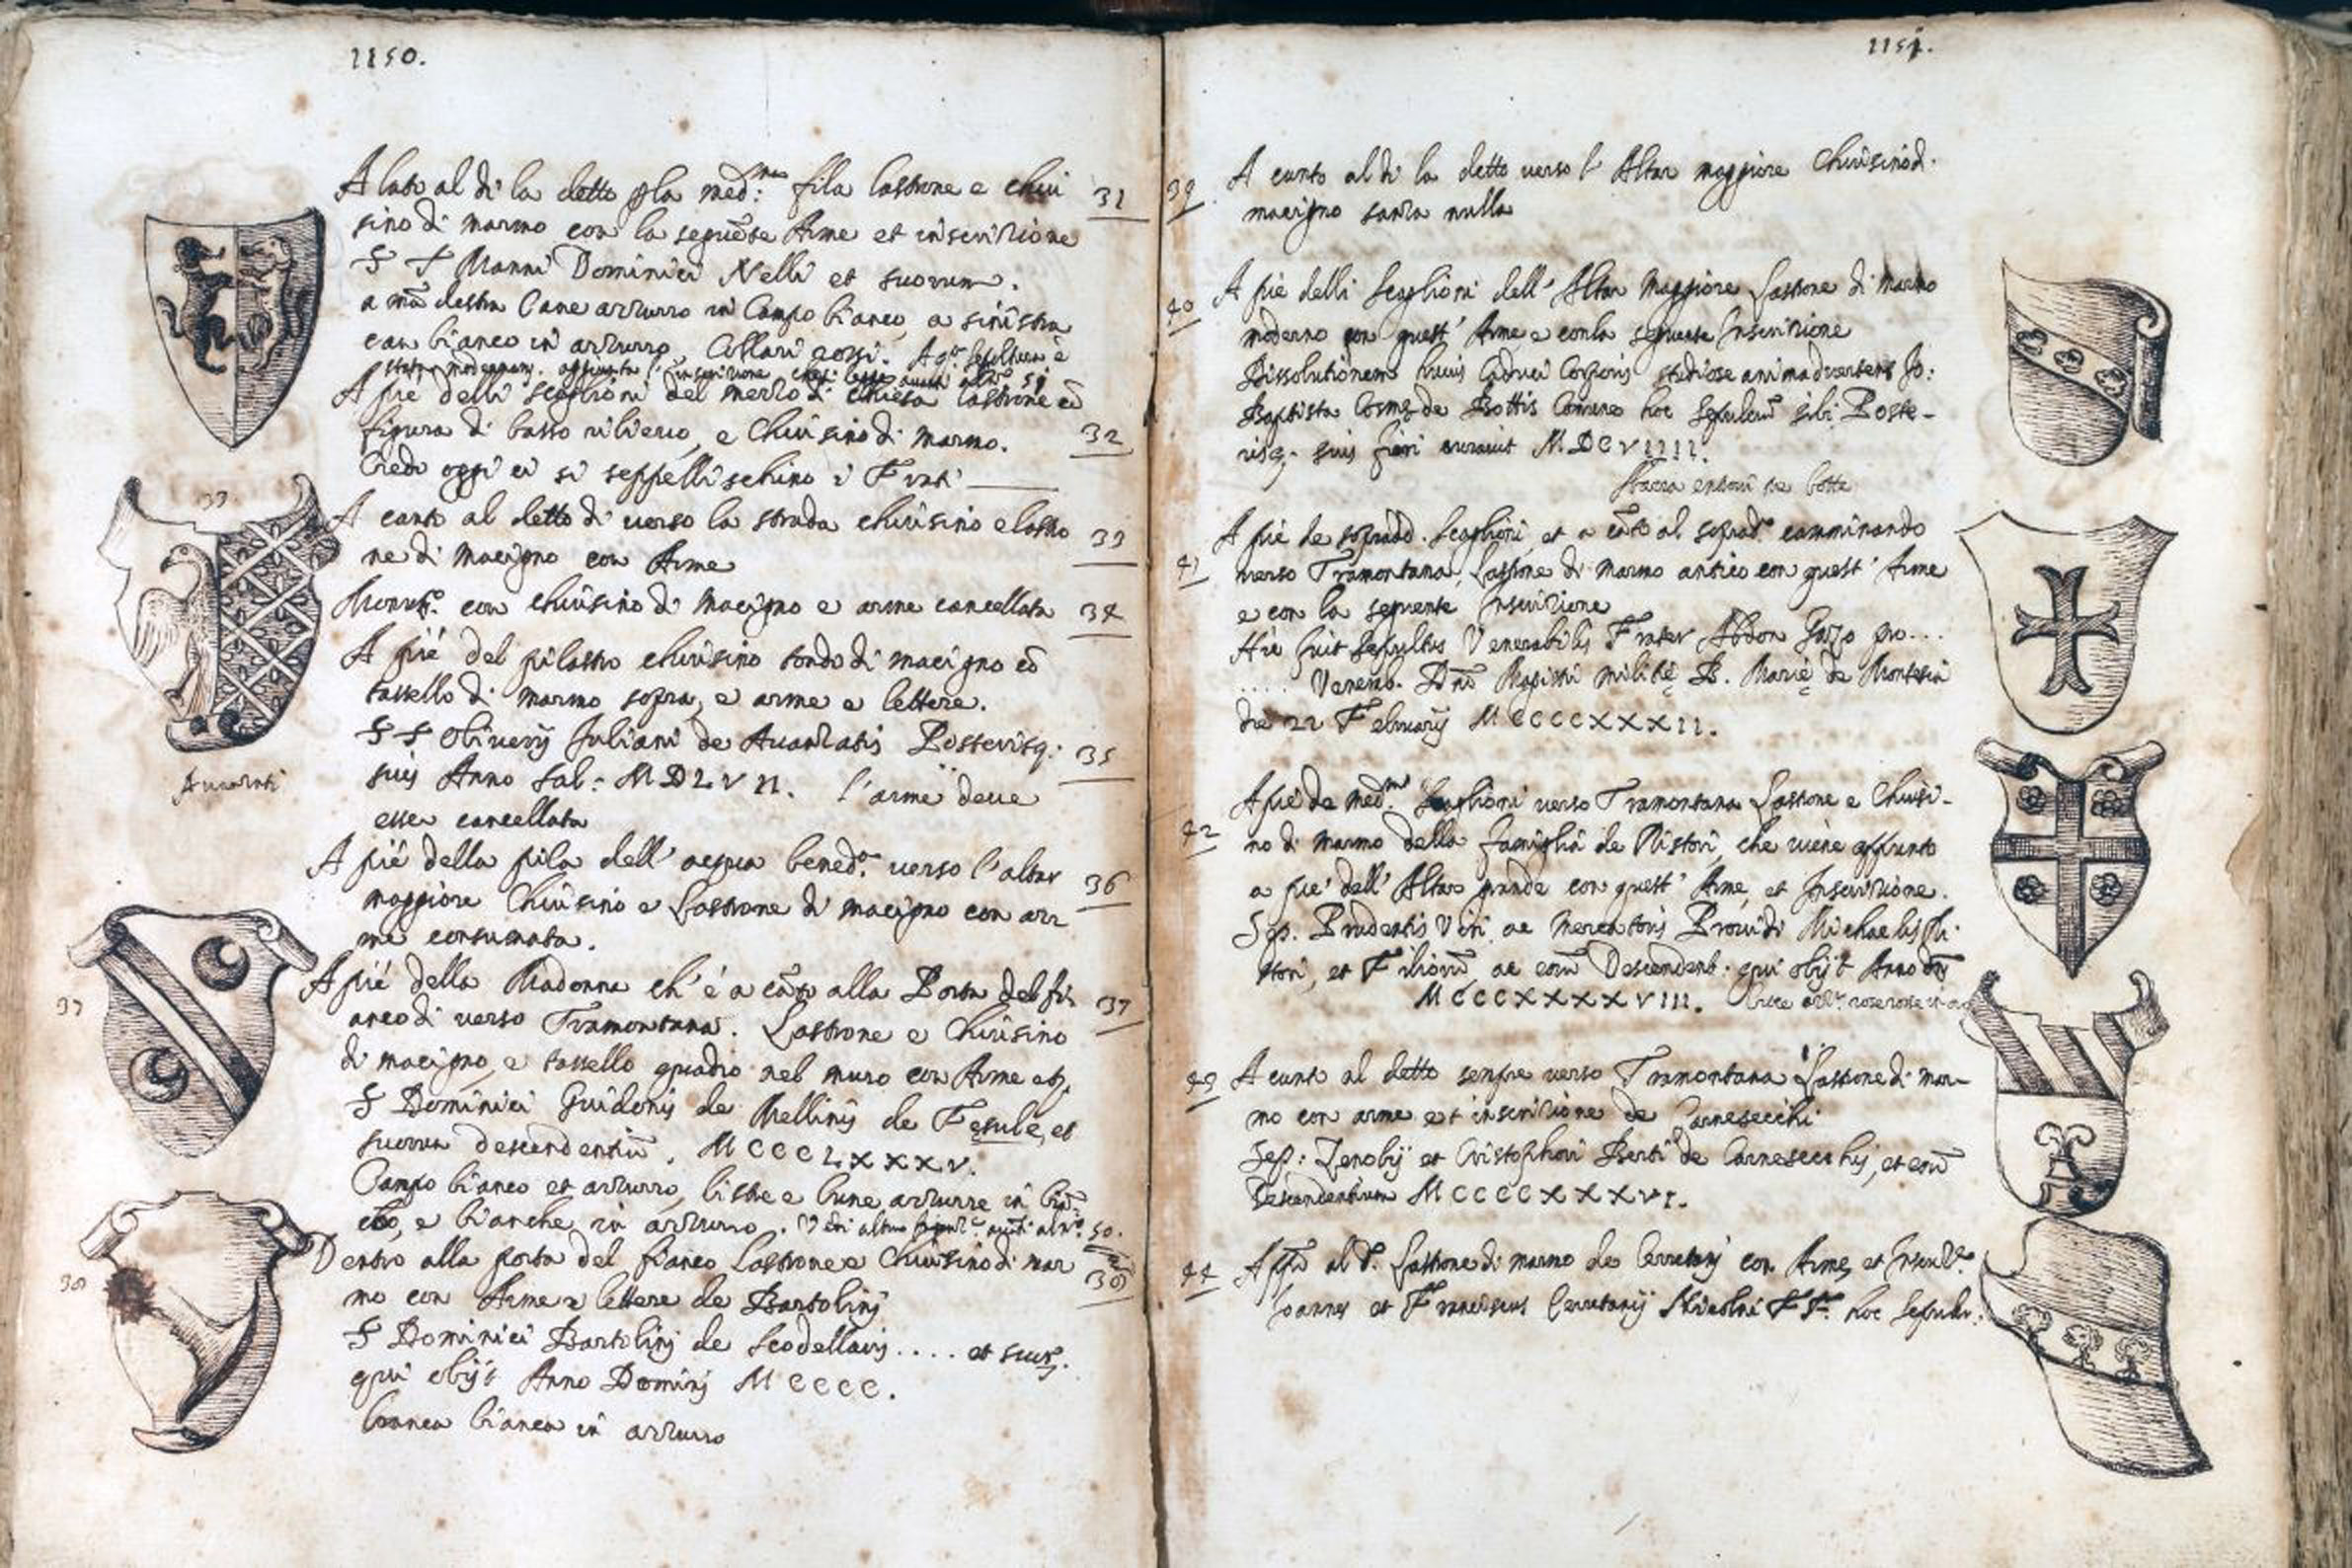 1150.
A lato al di la detto p la med.ma fila lastrone e chiu 31
sino di marmo con la seguēte Arme et inscrizione
S S Manni Dominici Nelli et suorum.
a mā destra Cane azzurro in Campo bianco, a sinistra
can bianco in azzurro, Collari rossi.
A piè delli scaglioni del mezzo di chiesa lastrone cō
figura di basso rilievo, e Chiusino di marmo. 32
Credo oggi ci si seppellischino i Frati
A canto al detto di verso la strada chiusino e lastro
ne di macigno con Arme 33
con chiusino di macigno e arme cancellata 34
A piè del pilastro chiusino tondo di macigno cō
tassello di marmo sopra, e arme e lettere.
S S Oliverij Juliani de Avanzatis Posterisq: 35
suis Anno Sal: MDLVII. l'arme deve
esser cancellata
Avanzati
A piè della pila dell' acqua bened.a verso l'altar
maggiore Chiusino e Lastrone di macigno con ar 36
me consumata.
A piè della Madonna ch' è a cāto alla Porta del fi
anco di verso Tramontana. Lastrone e Chiusino 37
di macigno, e tassello quadro nel muro con Arme
S Dominici Guidonis de Mellinis de Fesule, et
suorum descendentiū. MCCCLXXXV.
Campo bianco et azzurro, liste e lune azzurre in biā
co, e bianche in azzurro. 50.
Dentro alla porta del fianco Lastrone e Chiusino di mar 38
mo con Arme e lettere de Bartolinj
S Dominici Bartolinj de Scodellaris .... et suor.
qui obijt Anno Dominj MCCCC.
branca bianca in azzurro
37
38
1151.
39 A canto al di la detto verso l' Altar maggiore Chiusino di
macigno sanza nulla
40 A piè delli Scaglioni dell' Altar Maggiore Lastrone di marmo
moderno con quest' Arme e con la seguente Inscrizione
Dissolutionem huius Caduci Corporis studiose animadvertens Jo:
Baptista Cosme de Bottis hoc Sepulcrū sibi Poste-
risq. suis fieri curavit MDCVIIII.
A piè de sopradd. Scaglioni, et a cāto al soprad.o camminando
41 verso Tramontana, Lastrone di marmo antico con quest' Arme
e con la seguente Inscrizione
Hic fuit Sepultus Venerabilis Frater Abdon ...
.... Dn̄i Magistri militie B. Marie de Montesia
die 22 Februarij MCCCCXXXII.
A piè de med.mi Scaglioni verso Tramontana Lastrone e Chiusi-
42 no di marmo della famiglia de Ristori, che viene appunto
a piè dell' Altar grande con quest' Arme, et Inscrizione.
Sep. Prudentis Viri ac Mercatoris Providi Michaelis Ri-
stori, et Filiorū, ac eorū Descendent. qui obijt Anno Dn̄i
MCCCXXXXVIII.
43 A canto al detto sempre verso Tramontana Lastrone di mar-
mo con arme et inscrizione de Carnesecchi
Sep: Zenobij et Cristophori Berti de Carnesecchis, et eorū
Descendentium MCCCCXXXVI.
44 al d. Lastrone di marmo de Cerretanj con Arme, et Inscriz.e
Joannes et Franciscus Cerretanij Nicolai FF. hoc Sepulcr: